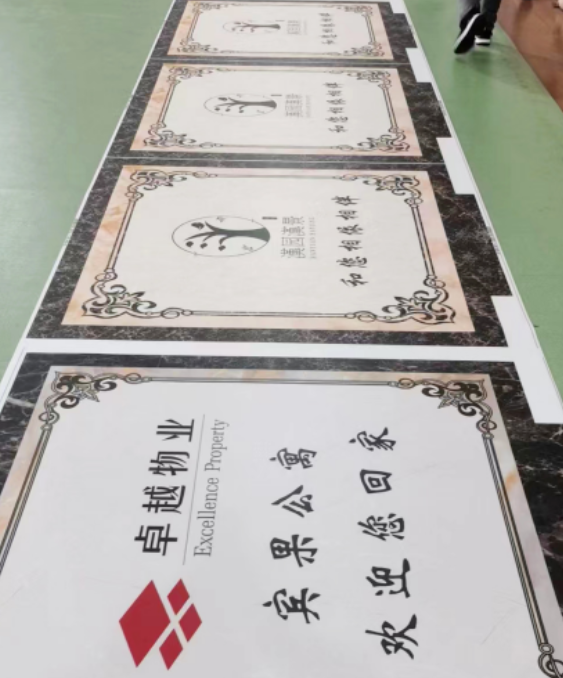 卓越物业
Excellence Property
宾果公寓
欢迎您回家
和您相依相伴
和您相依相伴
和您相依相伴